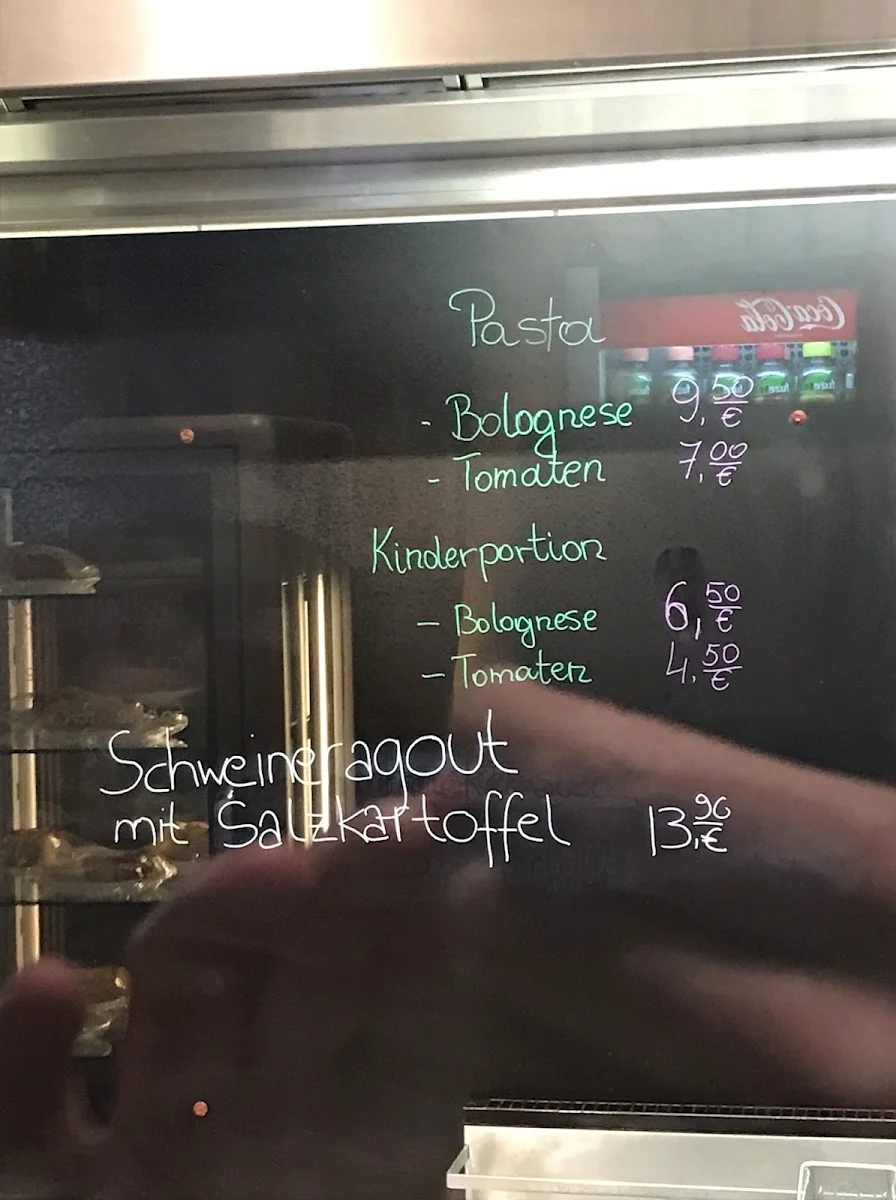 Pasta
Coca-Cola
- Bolognese 9,50 €
- Tomaten 7,00 €
Kinderportion
- Bolognese 6,50 €
- Tomaten 4,50 €
Schweineragout
mit Salzkartoffel 13,90 €